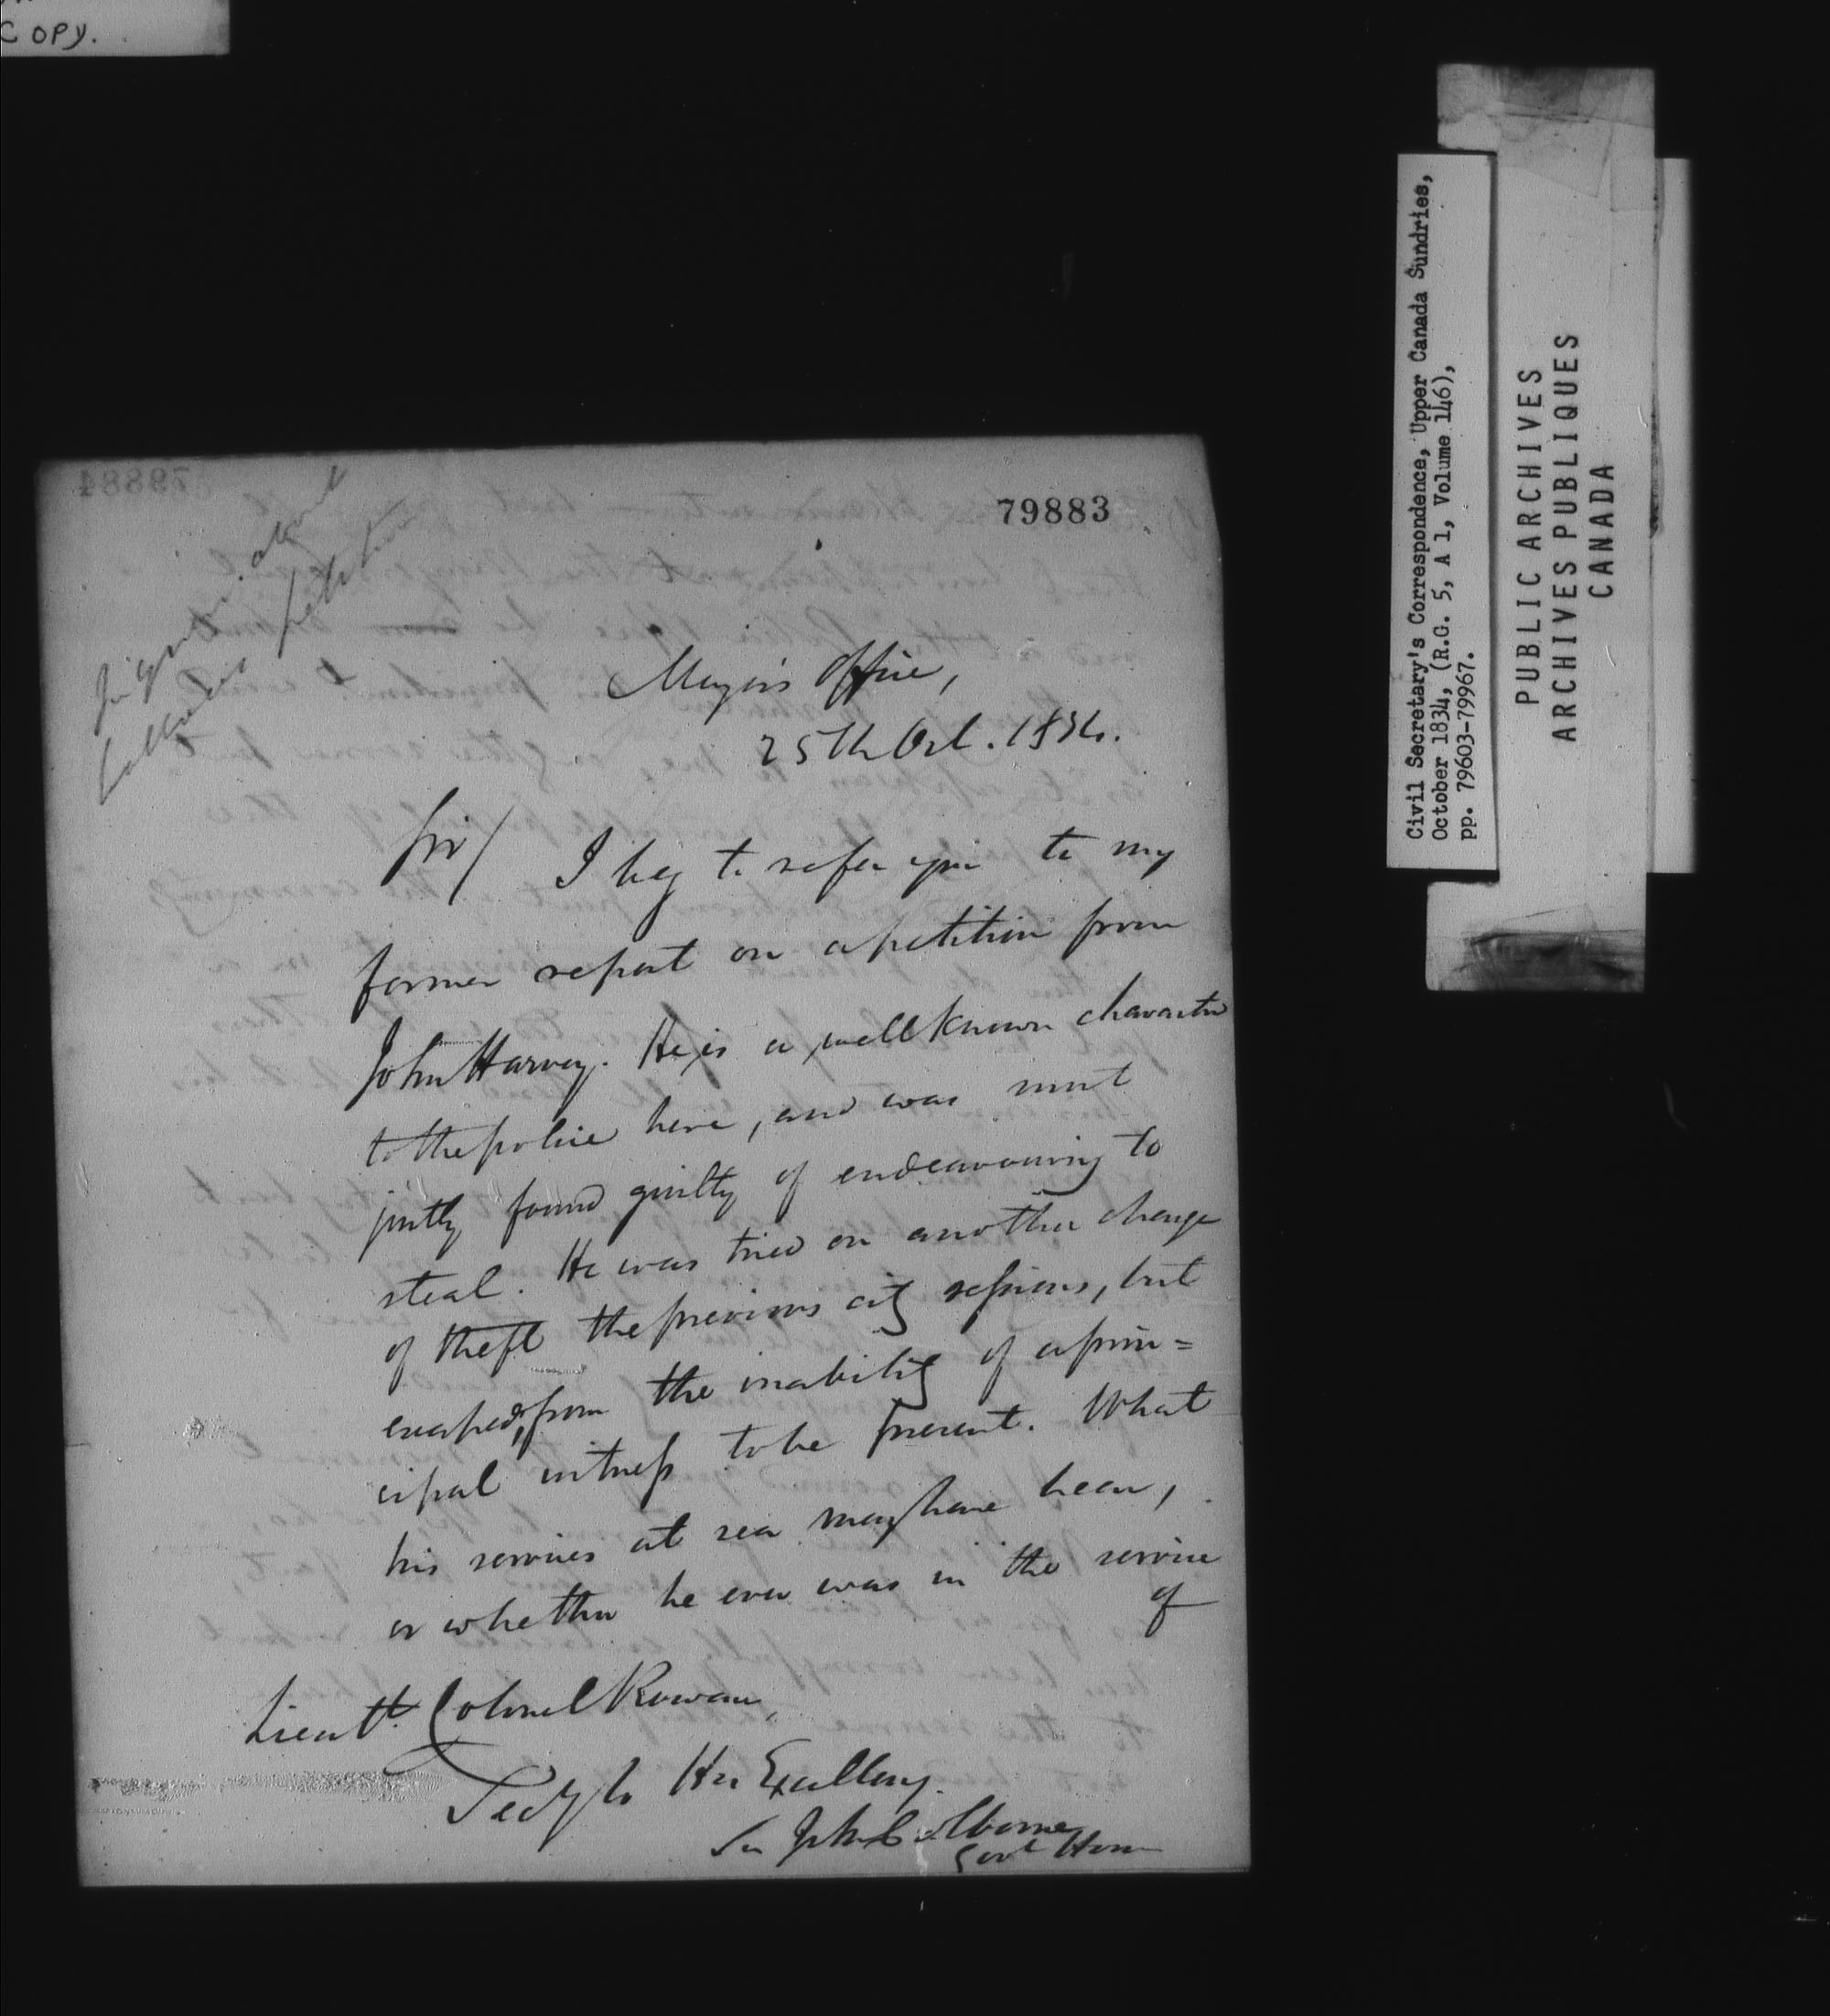 COPY.
79884
79883
Mayor's Office,
25th Oct. 1834.
Sir/ I beg to refer you to my
former report on a petition from
John Harvey. He is a well known character
to the police here, and was most
justly found guilty of endeavouring to
steal. He was tried on another charge
of theft the previous city sessions, but
escaped, from the inability of a prin=
cipal witness to be present. What
his services at sea may have been,
or whether he ever was in the service
of
Lieutt. Colonel Rowan,
Secy to His Excellency
Sir John Colborne
Govt House
Civil Secretary's Correspondence, Upper Canada Sundries,
October 1834, (R.G. 5, A 1, Volume 146),
pp. 79603-79967.
PUBLIC ARCHIVES
ARCHIVES PUBLIQUES
CANADA